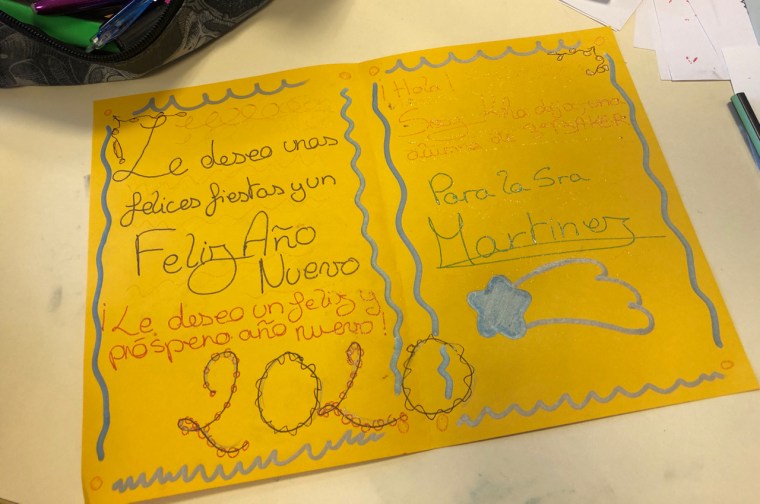 Le deseo unas
felices fiestas y un
Feliz Año
Nuevo
¡Le deseo un feliz y
próspero año nuevo!
2020
¡Hola!
Soy
alumna de
Para la Sra
Martinez